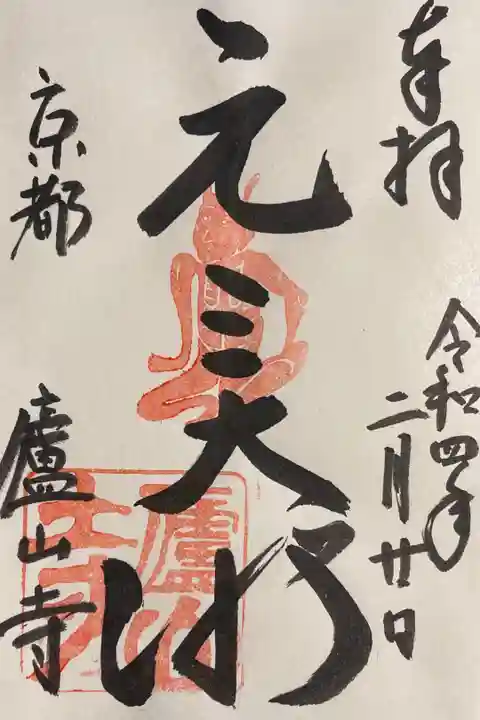 奉拝
令和四年
二月廿日
元三大師
京都
廬山寺
廬山
寺印